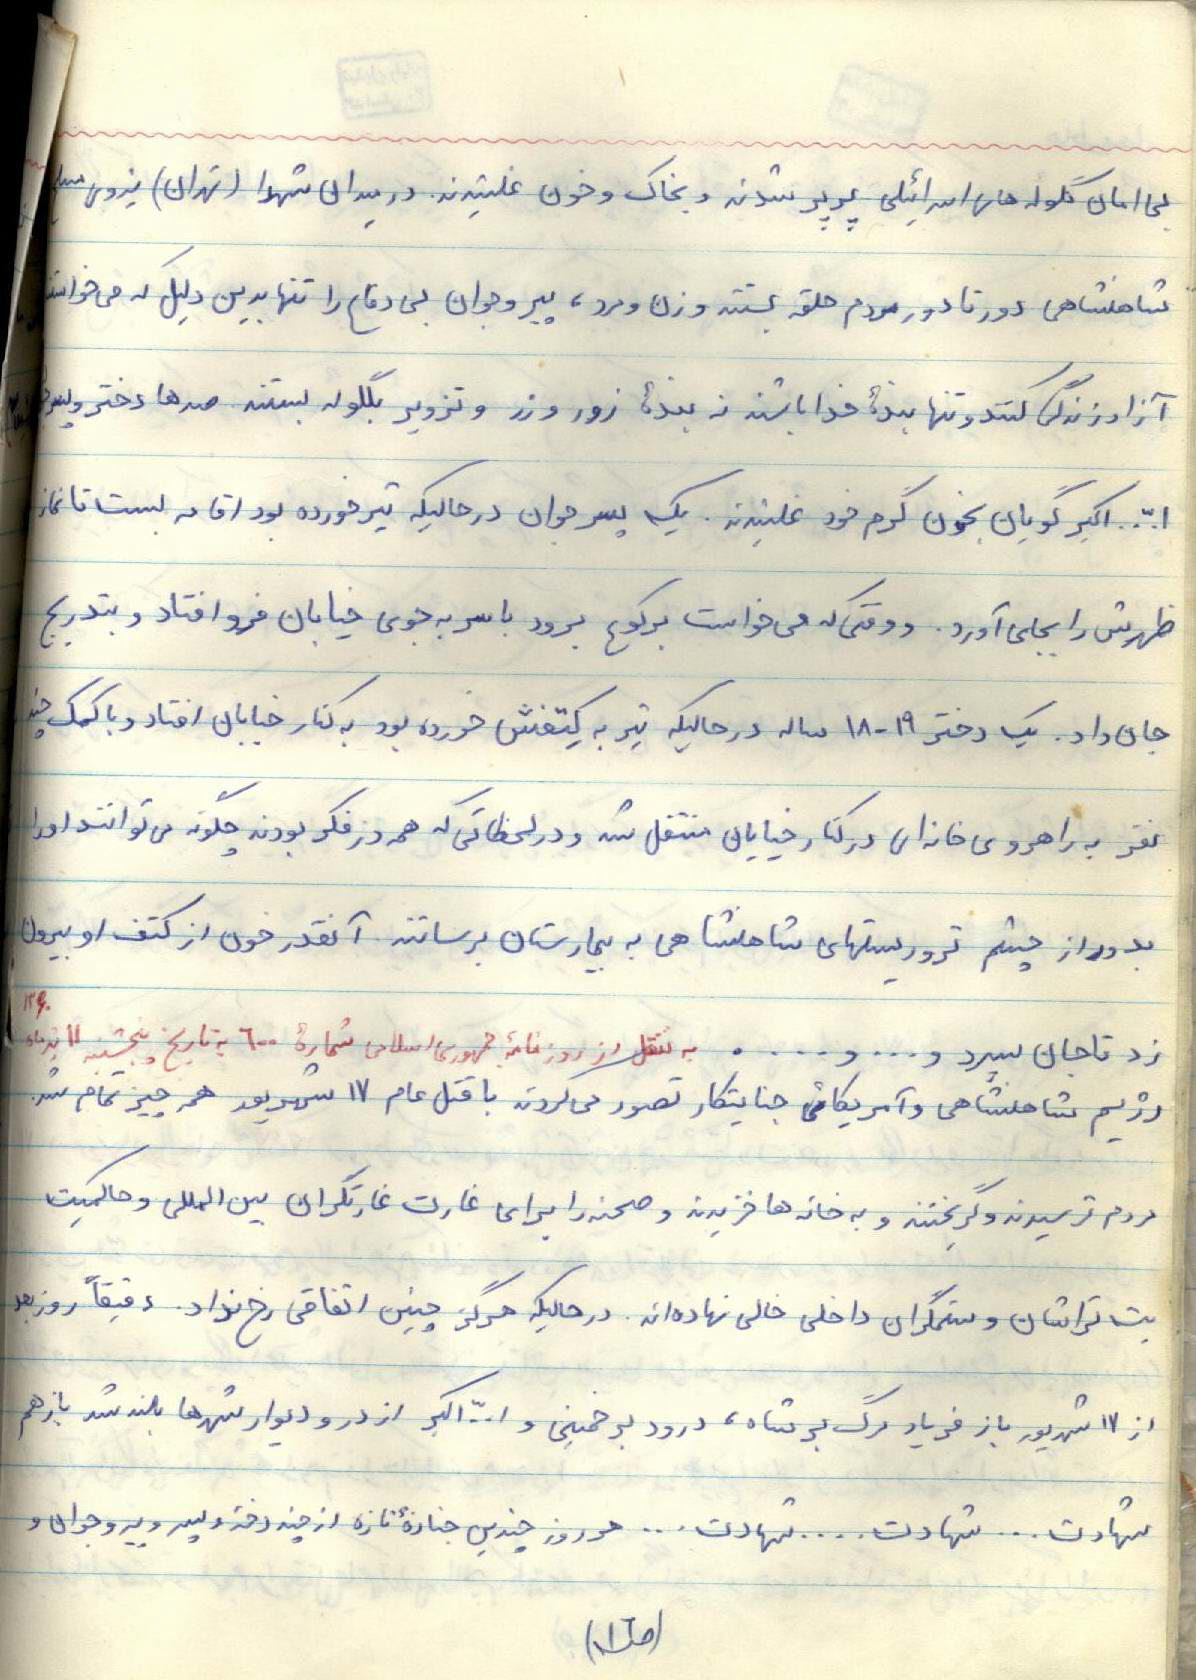 بی امان گلوله های اسرائیلی پرپر شدند و بخاک و خون غلتیدند. در میدان شهدا (تهران) نیروی مسلح
شاهنشاهی دورتادور مردم حلقه بستند و زن و مرد، پیر و جوان بی دفاع را تنها بدین دلیل که می خواستند
آزاد زندگی کنند و تنها بندهٔ خدا باشند نه بندهٔ زور و زر و تزویر بگلوله بستند. صدها دختر و پسر
ا... اکبر گویان بخون گرم خود غلتیدند. یک پسر جوان در حالیکه تیر خورده بود اقامه بست تا نماز
ظهرش را بجای آورد. و وقتی که می خواست برکوع برود با سر به جوی خیابان فرو افتاد و بتدریج
جان داد. یک دختر ۱۹-۱۸ ساله در حالیکه تیر به کتفش خورده بود به کنار خیابان افتاد و با کمک چند
نفر به راهروی خانه ای در کنار خیابان منتقل شد و در لحظاتی که همه در فکر بودند چگونه می توانند او را
بدور از چشم تروریستهای شاهنشاهی به بیمارستان برسانند. آنقدر خون از کتف او بیرون
زد تا جان سپرد و.... و..... به نقل از روزنامهٔ جمهوری اسلامی شمارهٔ ٦٠٠ به تاریخ پنجشنبه ۱۱ تیرماه ۱۳۶۰
رژیم شاهنشاهی و آمریکائی جنایتکار تصور می کردند با قتل عام ۱۷ شهریور همه چیز تمام شد.
مردم ترسیدند و گریختند و به خانه ها خزیدند و صحنه را برای غارت غارتگران بین المللی و حاکمیت
بت تراشان و ستمگران داخلی خالی نهاده اند. در حالیکه هرگز چنین اتفاقی رخ نداد. دقیقاً روز بعد
از ۱۷ شهریور باز فریاد مرگ بر شاه، درود بر خمینی و ا... اکبر از در و دیوار شهرها بلند شد باز هم
شهادت... شهادت.... شهادت... هر روز چندین جنازهٔ تازه از چند دختر و پسر و پیر و جوان و